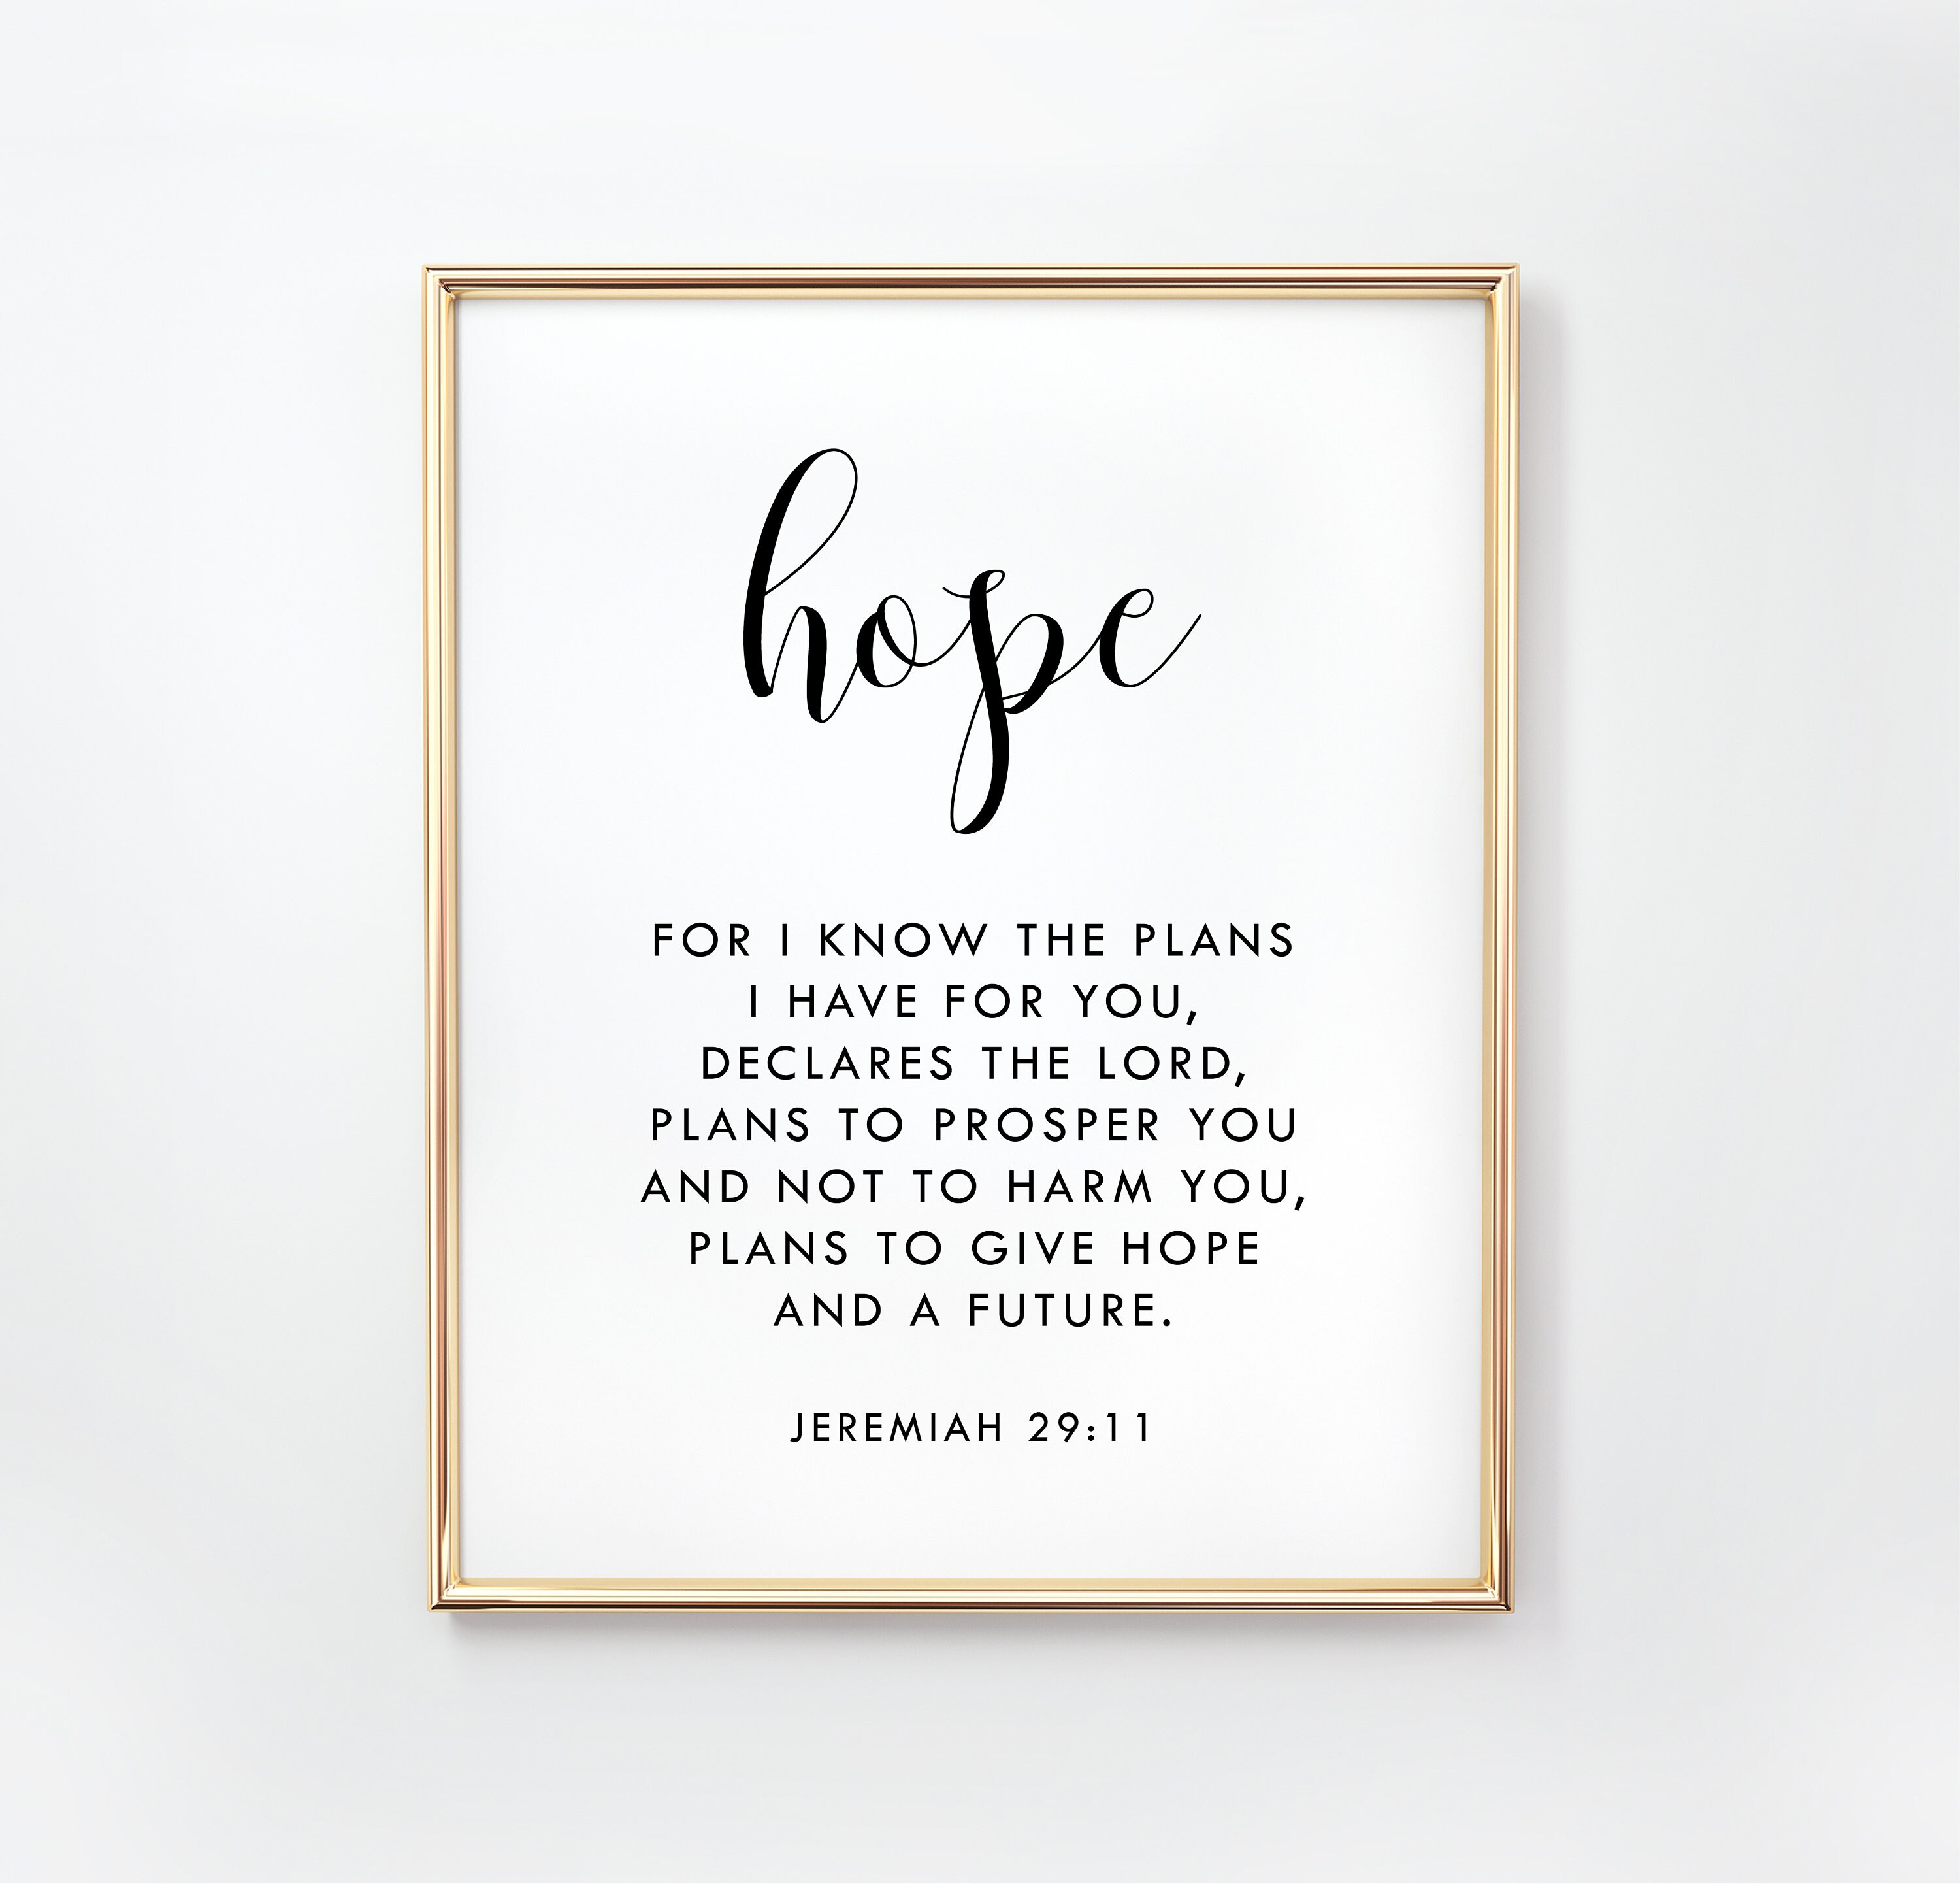 hope
FOR I KNOW THE PLANS
I HAVE FOR YOU,
DECLARES THE LORD,
PLANS TO PROSPER YOU
AND NOT TO HARM YOU,
PLANS TO GIVE HOPE
AND A FUTURE.
JEREMIAH 29:11